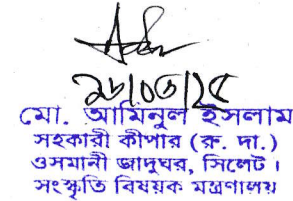 ২৮/০৩/২৫
মো. আমিনুল ইসলাম
সহকারী কীপার (রু. দা.)
ওসমানী জাদুঘর, সিলেট।
সংস্কৃতি বিষয়ক মন্ত্রণালয়